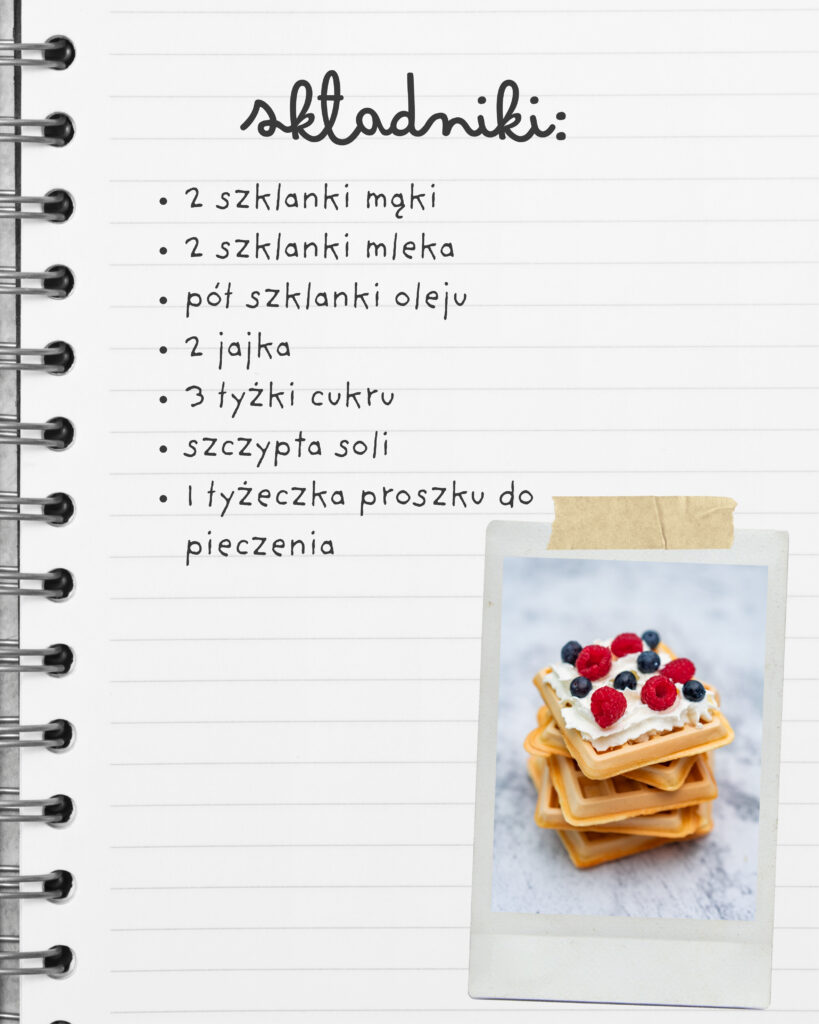 składniki:
• 2 szklanki mąki
• 2 szklanki mleka
• pół szklanki oleju
• 2 jajka
• 3 łyżki cukru
• szczypta soli
• 1 łyżeczka proszku do
pieczenia